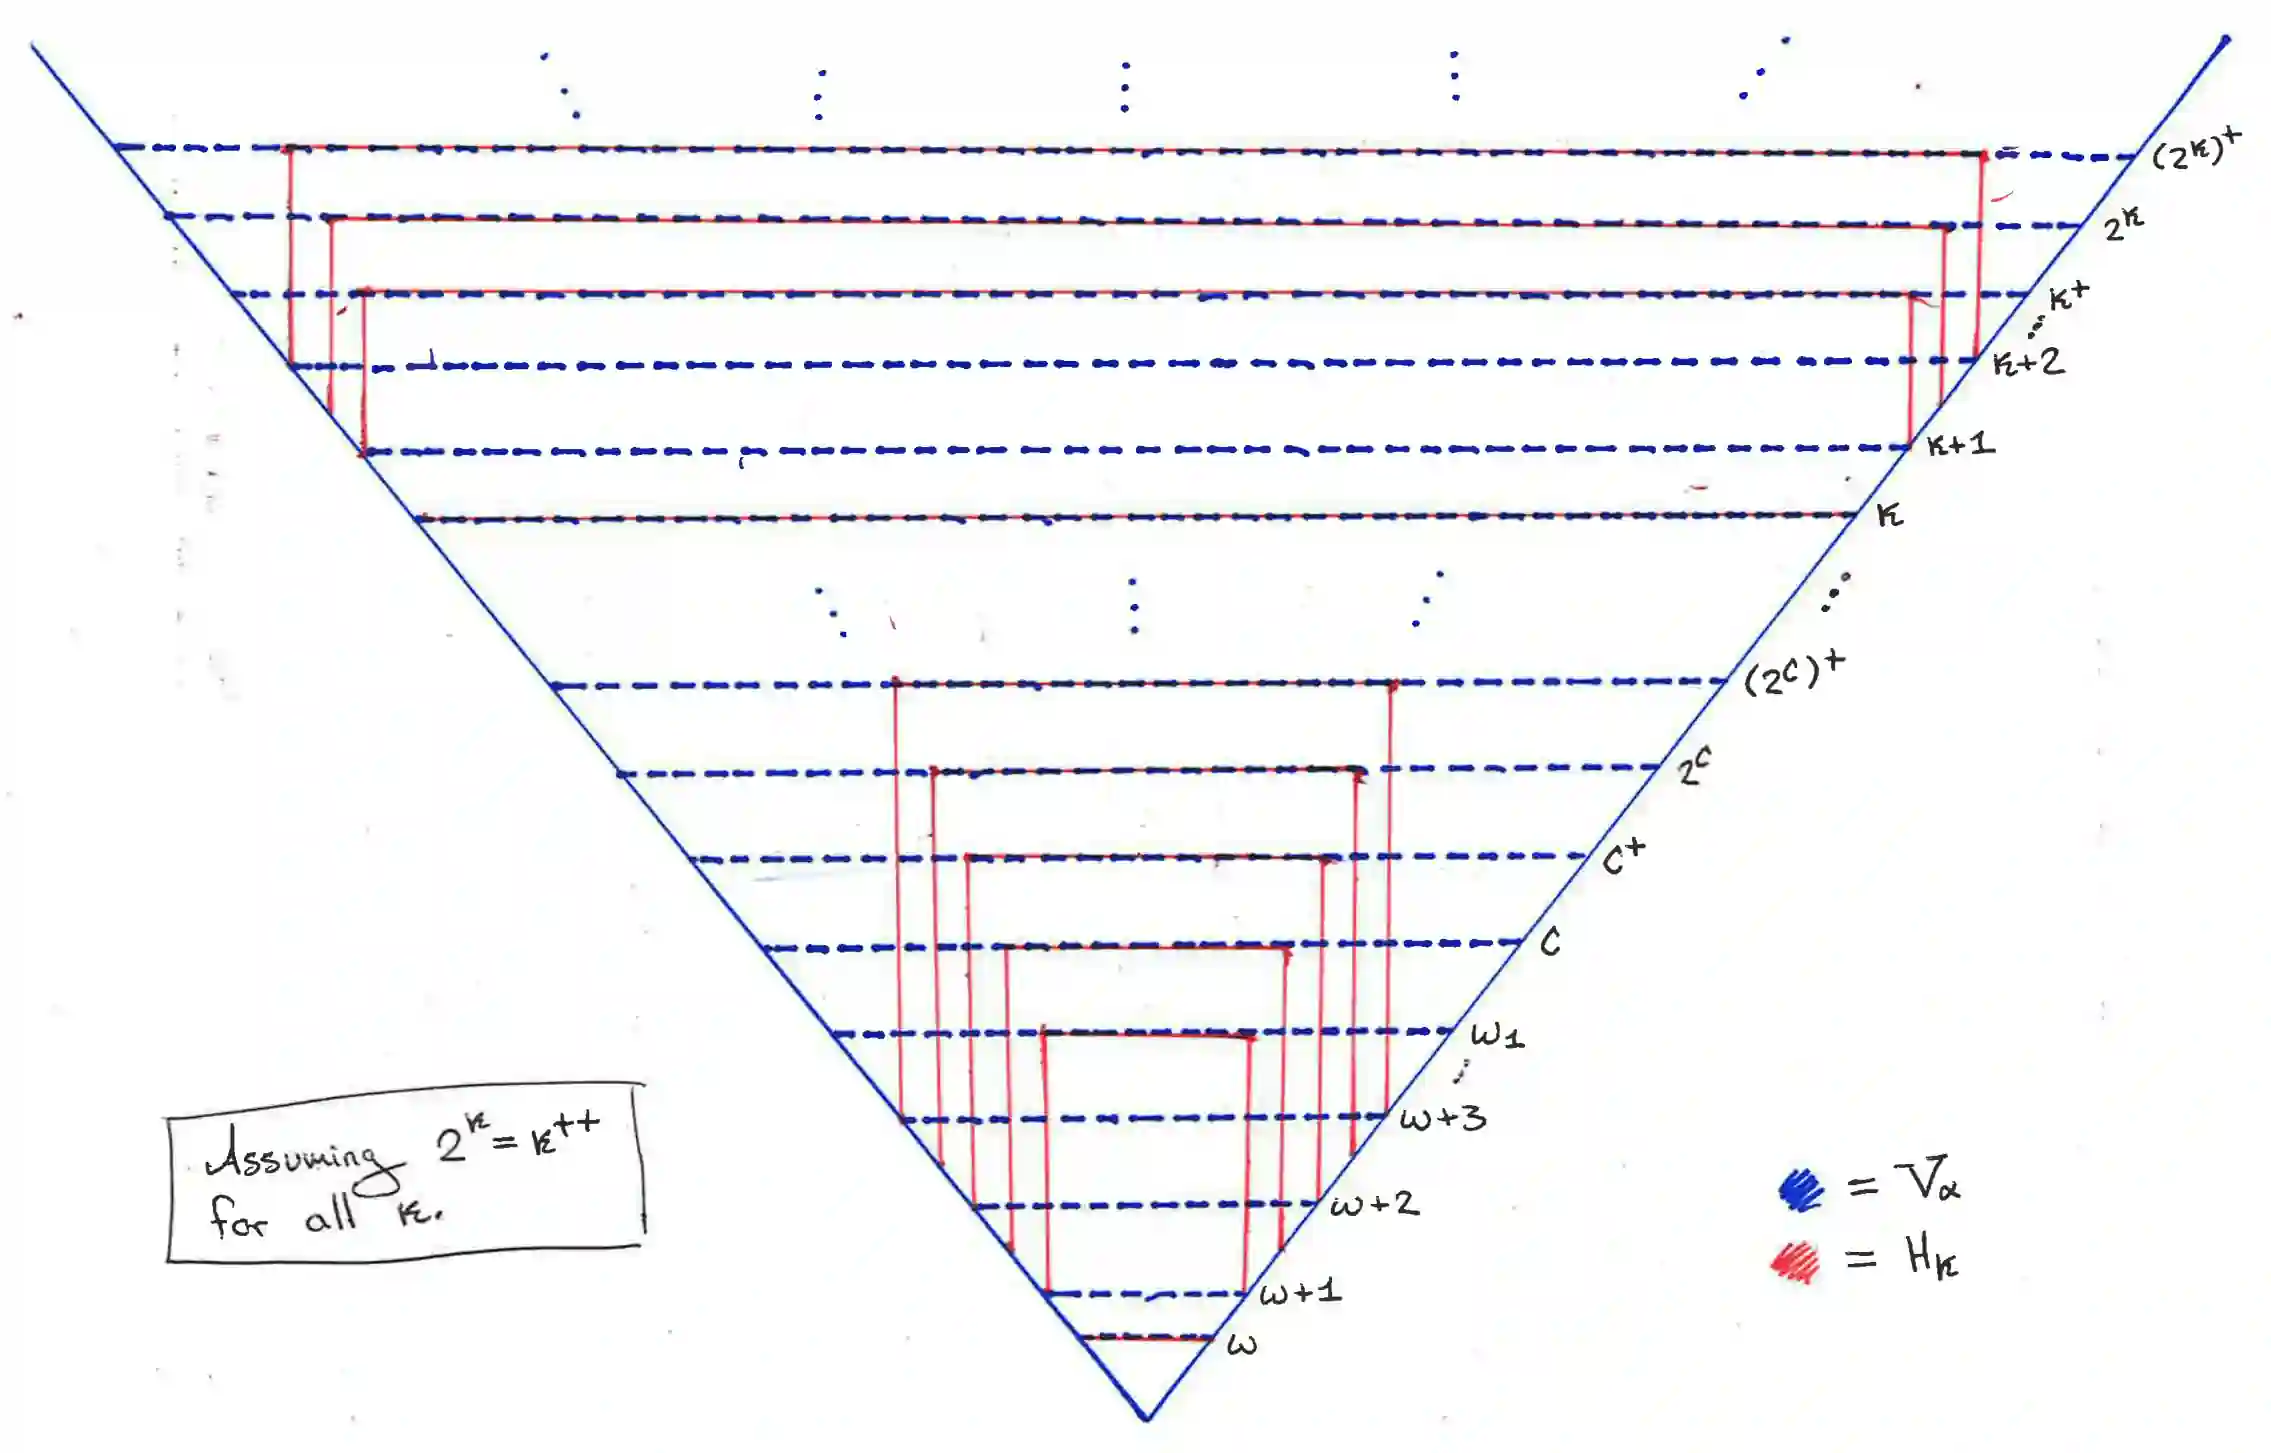 (2^κ)^+
2^κ
κ^+
κ+2
κ+1
κ
(2^c)^+
2^c
c^+
c
ω_1
ω+3
ω+2
ω+1
ω
Assuming 2^κ = κ^++
for all κ.
= V_α
= H_κ